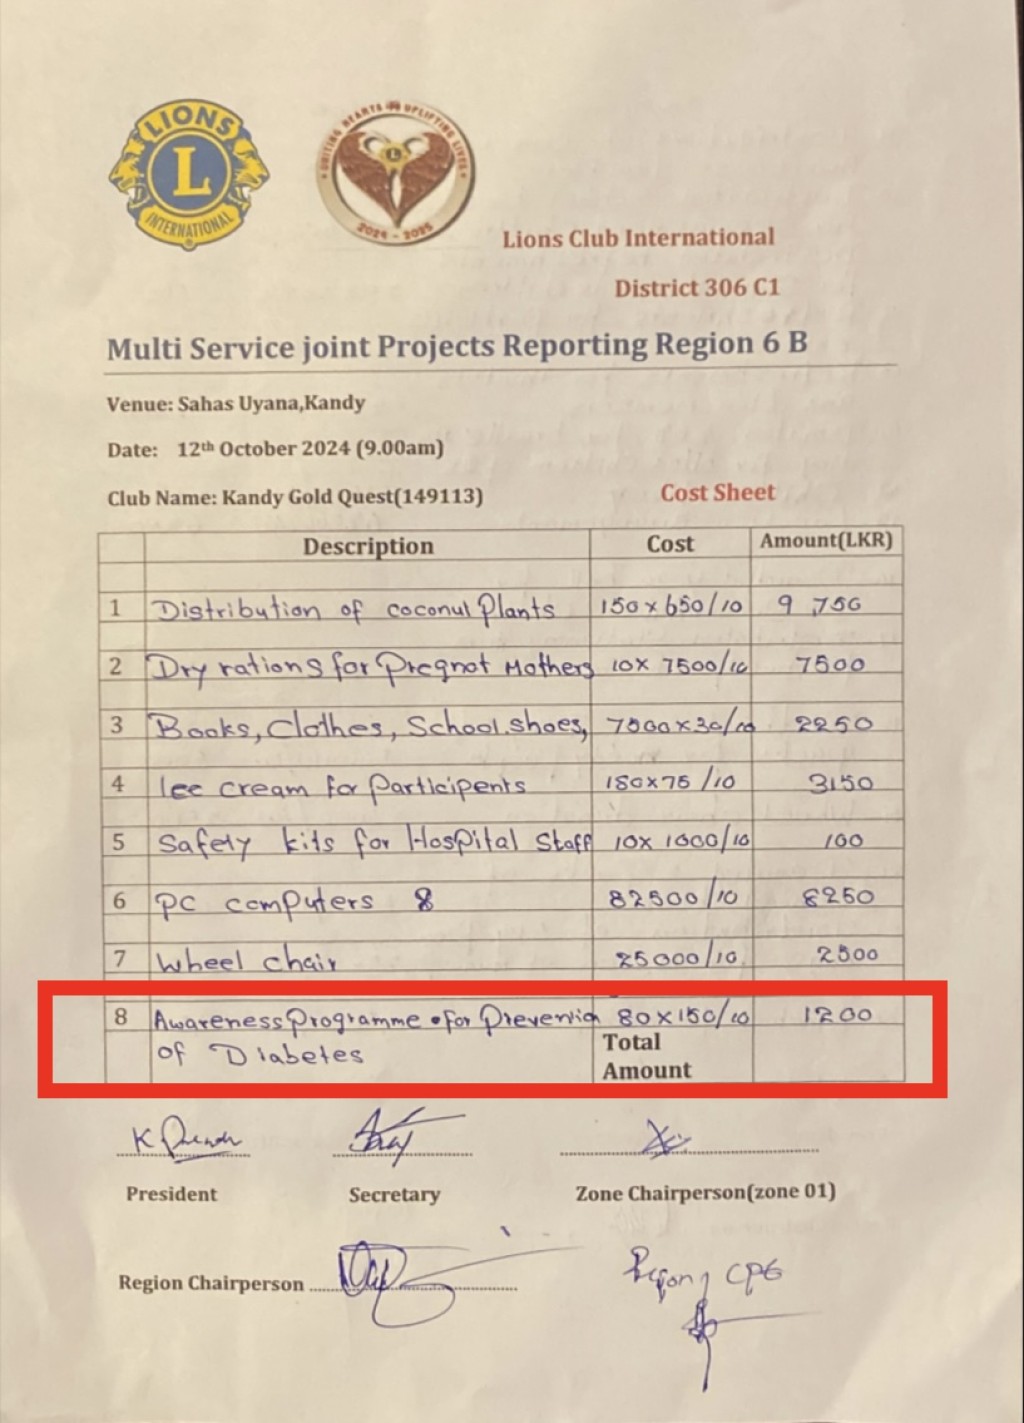 LIONS
L
INTERNATIONAL
UNITING HEARTS UPLIFTING LIVES
L
2024 - 2025
Lions Club International
District 306 C1
Multi Service joint Projects Reporting Region 6 B
Venue: Sahas Uyana,Kandy
Date: 12th October 2024 (9.00am)
Club Name: Kandy Gold Quest(149113) Cost Sheet
Description Cost Amount(LKR)
1 Distribution of coconut Plants 150 x 650/10 9,750
2 Dry rations for Pregnot Mothers 10x 7500/10 7500
3 Books, Clothes, School shoes, 7500 x 30/10 2250
4 Iee cream for Participents 180x75 /10 3150
5 Safety kits for Hospital Staff 10x 1000/10 100
6 PC computers 8 82500/10 8250
7 Wheel chair 25000/10 2500
8 Awareness Programme for Preventio 80 x 150/10 1200
of Diabetes Total
Amount
K
President Secretary Zone Chairperson(zone 01)
Region Chairperson